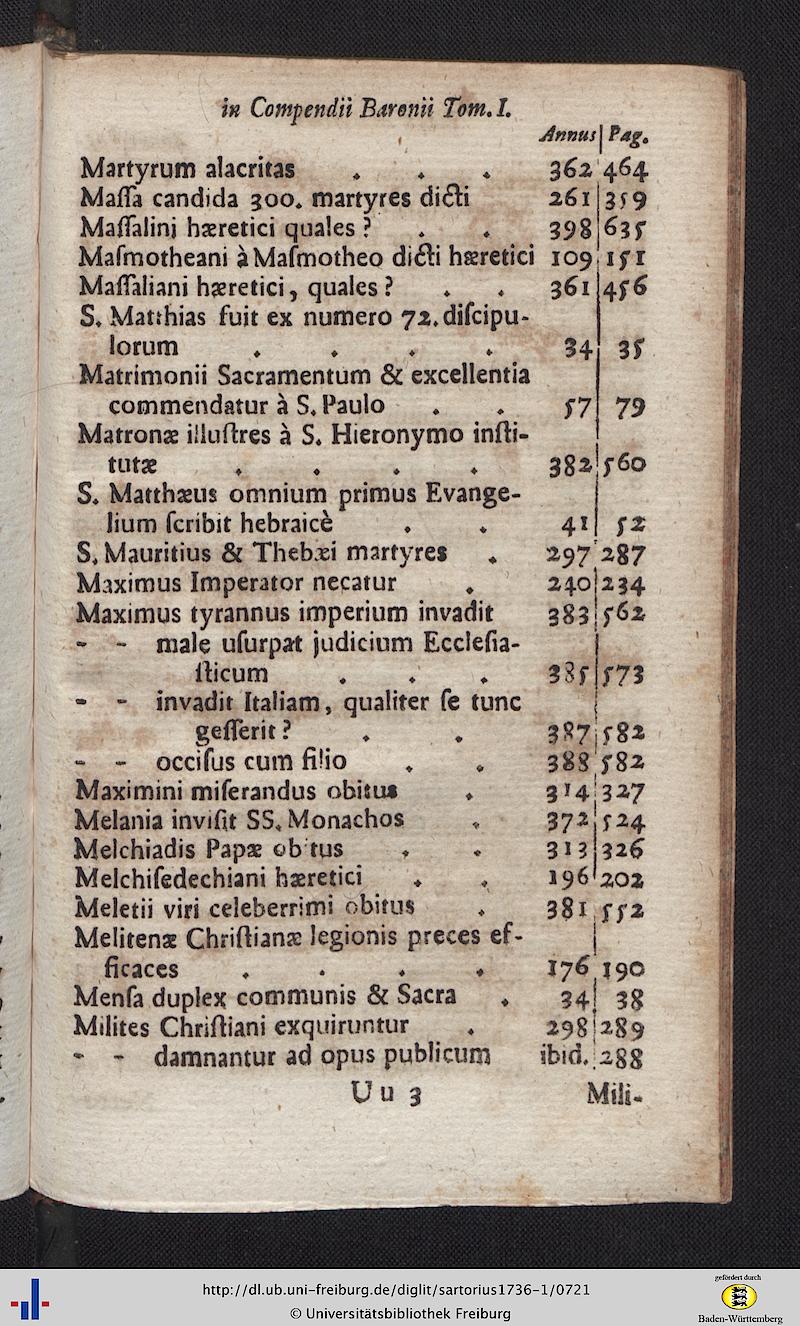 in Compendii Baronii Tom. I.
Annus | Pag.
Martyrum alacritas . . . 362 464
Maſſa candida 300. martyres dicti 261 359
Maſſalini hæretici quales ? . . 398 635
Maſmotheani à Maſmotheo dicti hæretici 109 151
Maſſaliani hæretici, quales ? . . 361 456
S. Matthias fuit ex numero 72. diſcipu-
lorum . . . . 34 35
Matrimonii Sacramentum & excellentia
commendatur à S. Paulo . . 57 79
Matronæ illuſtres à S. Hieronymo inſti-
tutæ . . . . 382 560
S. Matthæus omnium primus Evange-
lium ſcribit hebraicè . . 41 52
S. Mauritius & Thebæi martyres . 297 287
Maximus Imperator necatur . 240 234
Maximus tyrannus imperium invadit 383 562
- - male uſurpat judicium Eccleſia-
ſticum . . . 385 573
- - invadit Italiam, qualiter ſe tunc
geſſerit ? . . 387 582
- - occiſus cum filio . . 388 582
Maximini miſerandus obitus . 314 327
Melania inviſit SS. Monachos . 372 524
Melchiadis Papæ obitus . . 313 326
Melchiſedechiani hæretici . . 196 202
Meletii viri celeberrimi obitus . 381 552
Melitenæ Chriſtianæ legionis preces ef-
ficaces . . . . 176 190
Menſa duplex communis & Sacra . 34 38
Milites Chriſtiani exquiruntur . 298 289
- - damnantur ad opus publicum ibid. 288
U u 3 Mili-
http://dl.ub.uni-freiburg.de/diglit/sartorius1736-1/0721
© Universitätsbibliothek Freiburg
gefördert durch
Baden-Württemberg